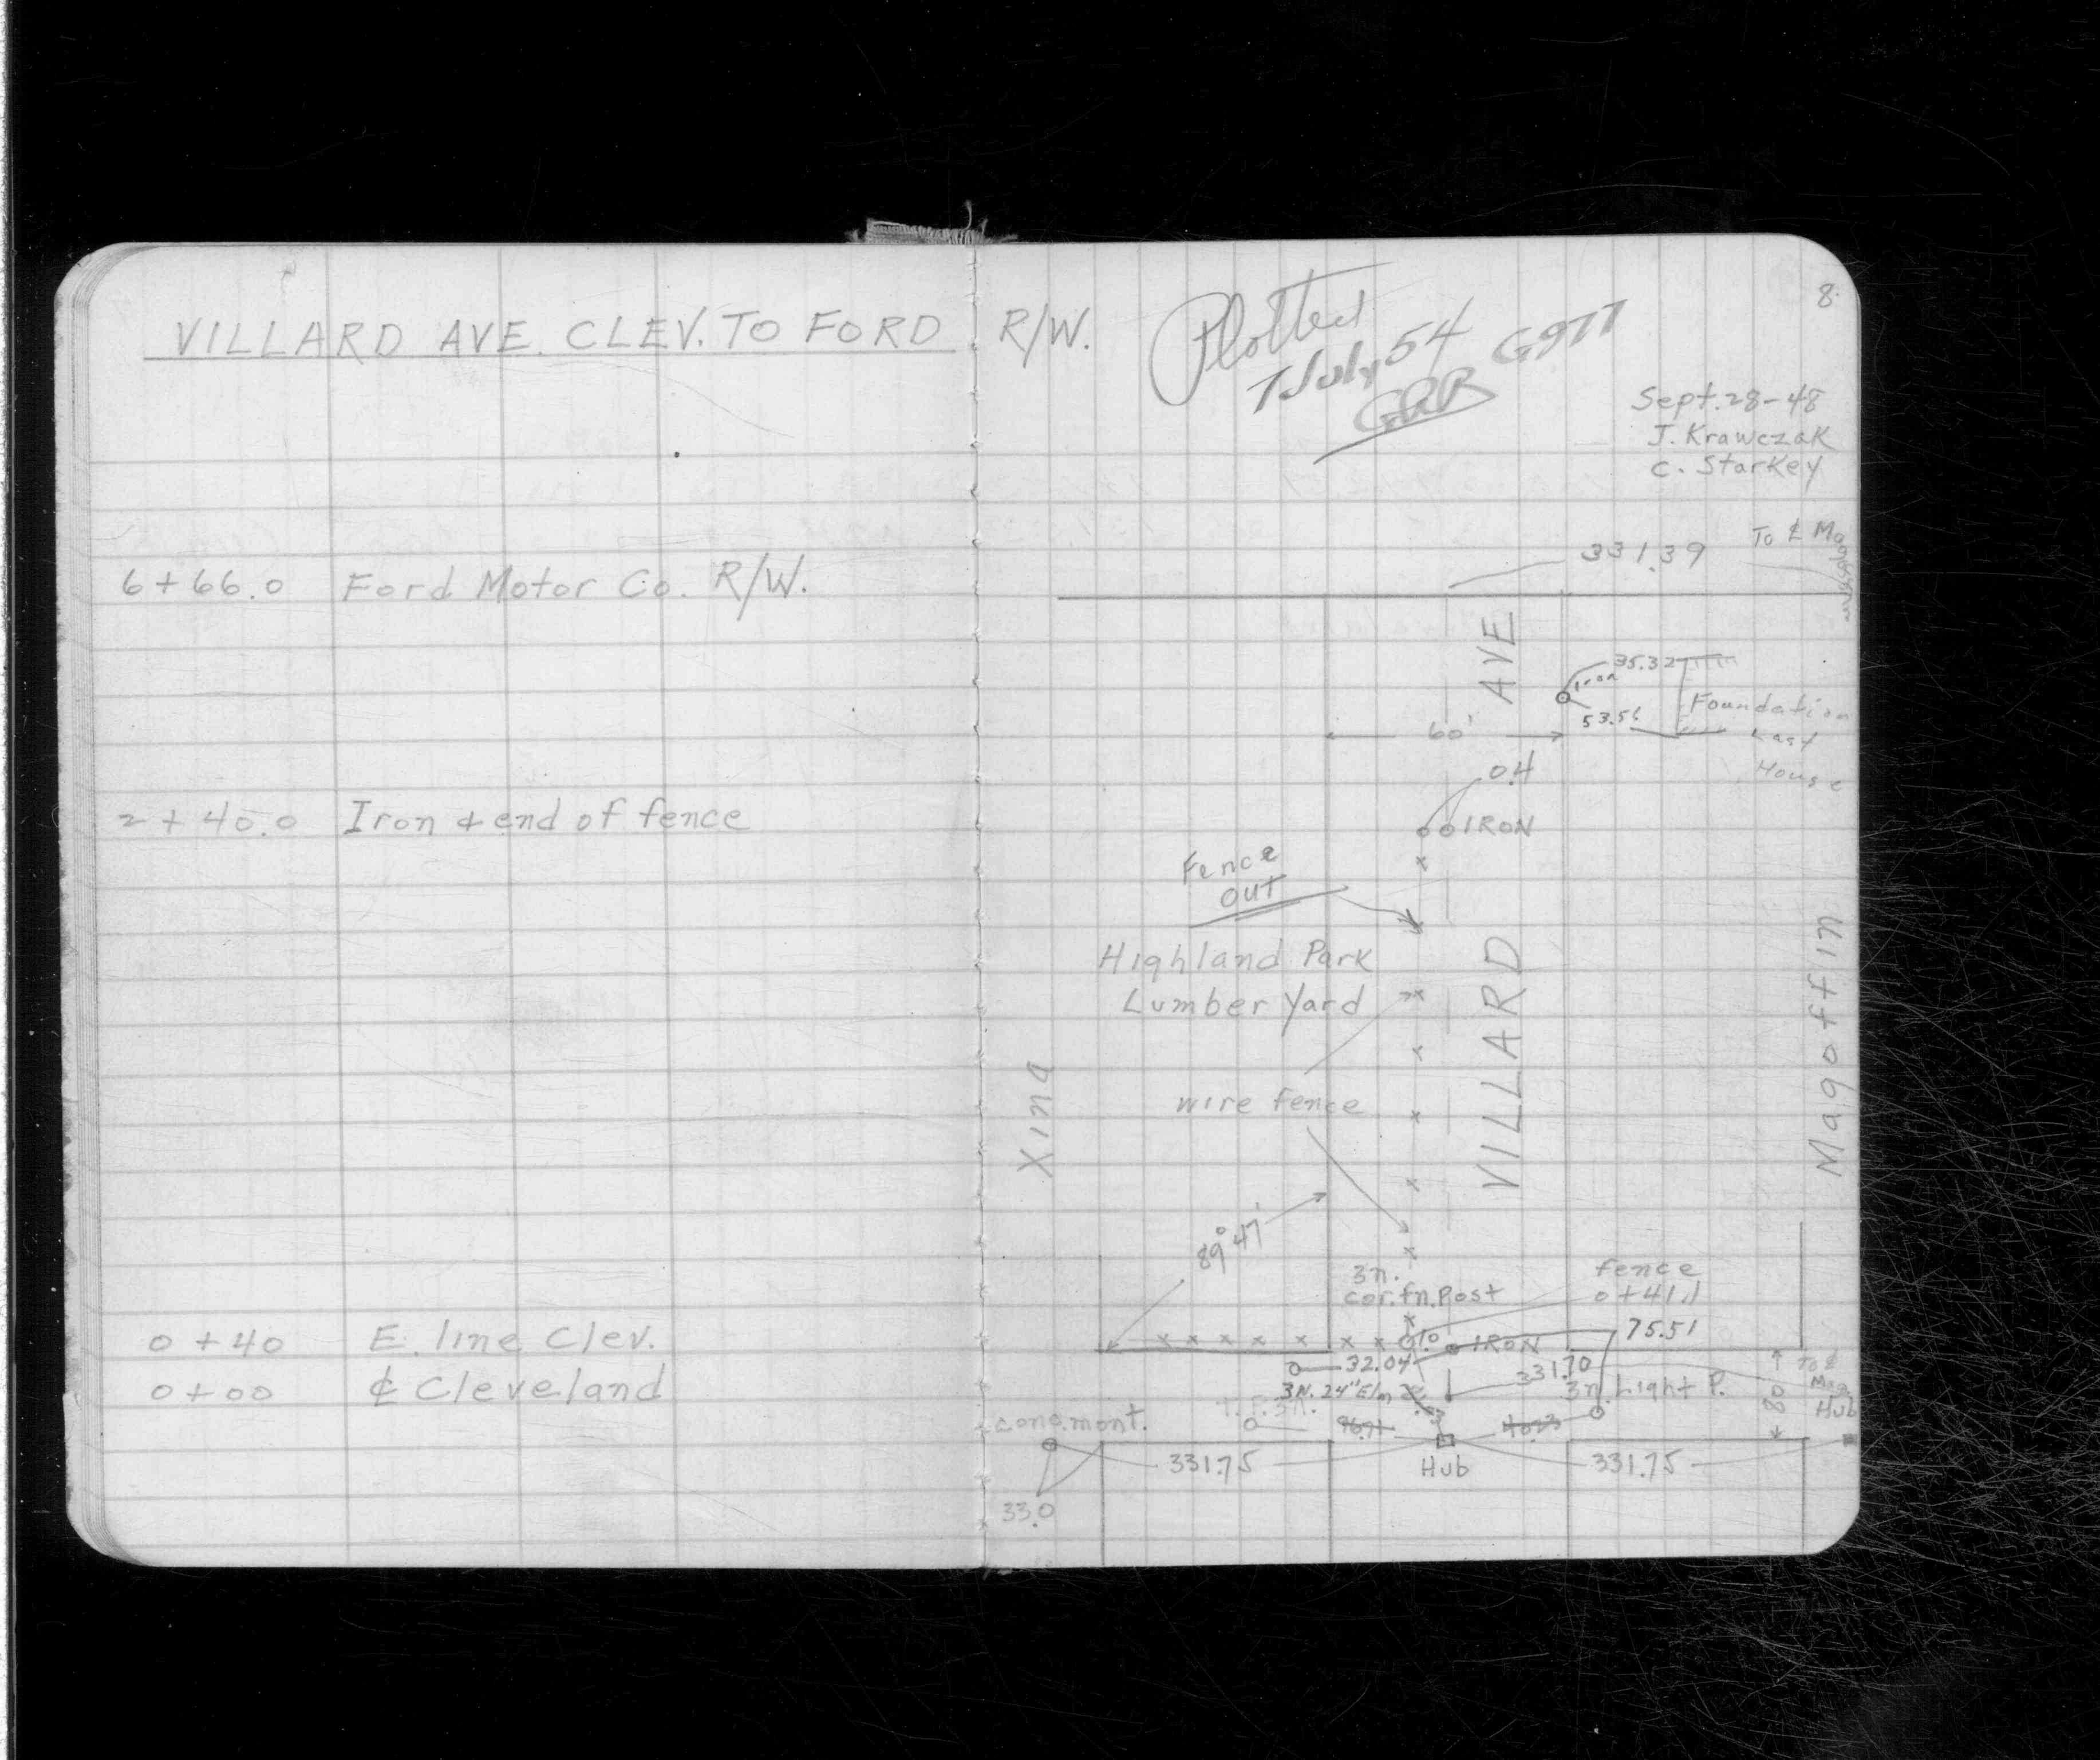 VILLARD AVE. CLEV. TO FORD R/W.
Plotted
7 July 54 G977
8.
Sept. 28-48
J. Krawczak
C. Starkey
6+66.0 Ford Motor Co. R/W.
2+40.0 Iron & end of fence
0+40 E. line Clev.
0+00 ℄ Cleveland
331.39
To ℄ Magoffin
VILLARD AVE
35.32
Iron
Foundation
Last
House
60'
0.4
IRON
Fence
OUT
Highland Park
Lumber Yard
wire fence
Xina
Magoffin
89°47'
3n.
cor. fn. Post
fence
0+41.1
75.51
1.0
IRON
32.04
331.70
3N. 24" Elm
3n. Light P.
80
To ℄
Mag.
Hub
conc. mont.
96.71
40.23
331.75
Hub
331.75
33.0